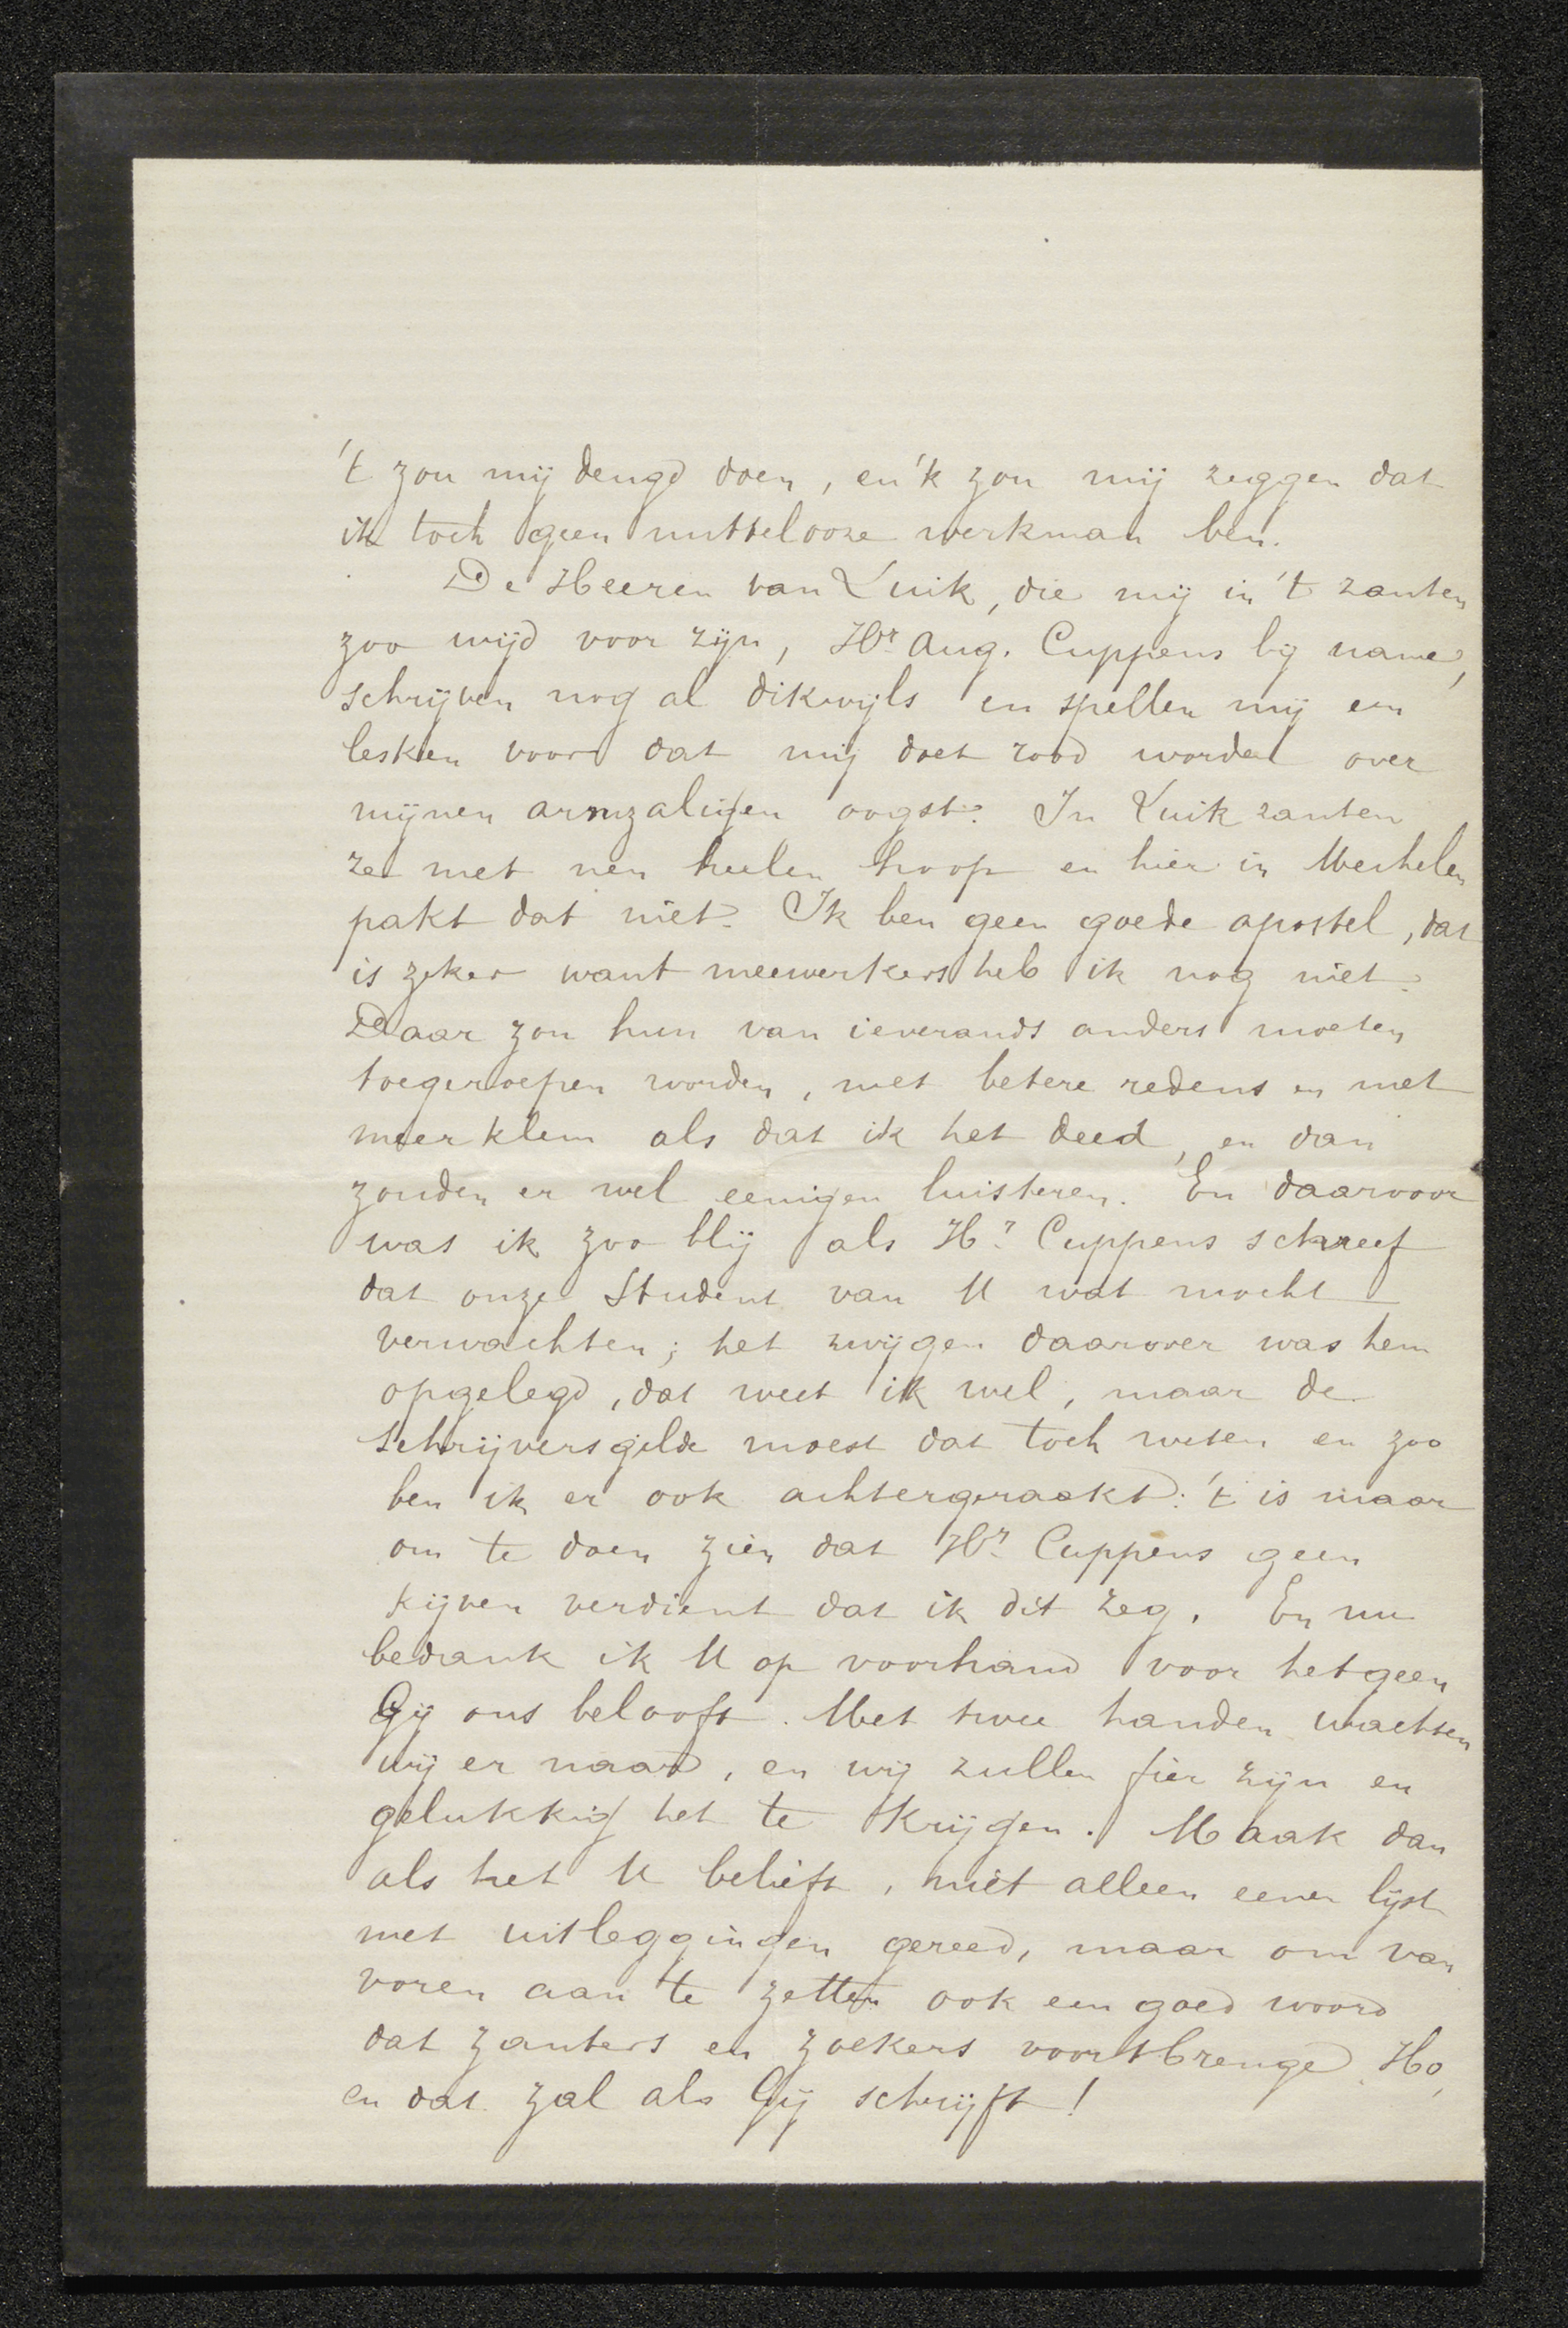 't zou mij deugd doen, en 'k zou mij zeggen dat
ik toch geen nuttelooze werkman ben.
De Heeren van Luik, die mij in 't zanten
zoo wijd voor zijn, Hr. Aug. Cuppens bij name,
schrijven nog al dikwijls en spellen mij een
lesken voor dat mij doet rood worden over
mijnen armzaligen oogst. In Luik zanten
ze met nen heelen hoop en hier in Mechelen
pakt dat niet. Ik ben geen goede apostel, dat
is zeker want meewerkers heb ik nog niet.
Daar zou hun van ieverands anders moeten
toegeroepen worden, met betere redens en met
meer klem als dat ik het deed, en dan
zouden er wel eenigen luisteren. En daarvoor
was ik zoo blij als Hr. Cuppens schreef
dat onze Student van U wat mocht
verwachten; het zwijgen daarover was hem
opgelegd, dat weet ik wel, maar de
schrijversgilde moest dat toch weten en zoo
ben ik er ook achtergeraakt: 't is maar
om te doen zien dat Hr. Cuppens geen
kijven verdient dat ik dit zeg. En nu
bedank ik U op voorhand voor hetgeen
Gij ons belooft. Met twee handen wachten
wij er naar, en wij zullen fier zijn en
gelukkig het te krijgen. Maak dan
als het U belieft, niet alleen eenen lijst
met uitleggingen gereed, maar om van
voren aan te zetten ook een goed woord
dat zanters en zoekers voortbrenge. Ho,
en dat zal als Gij schrijft!